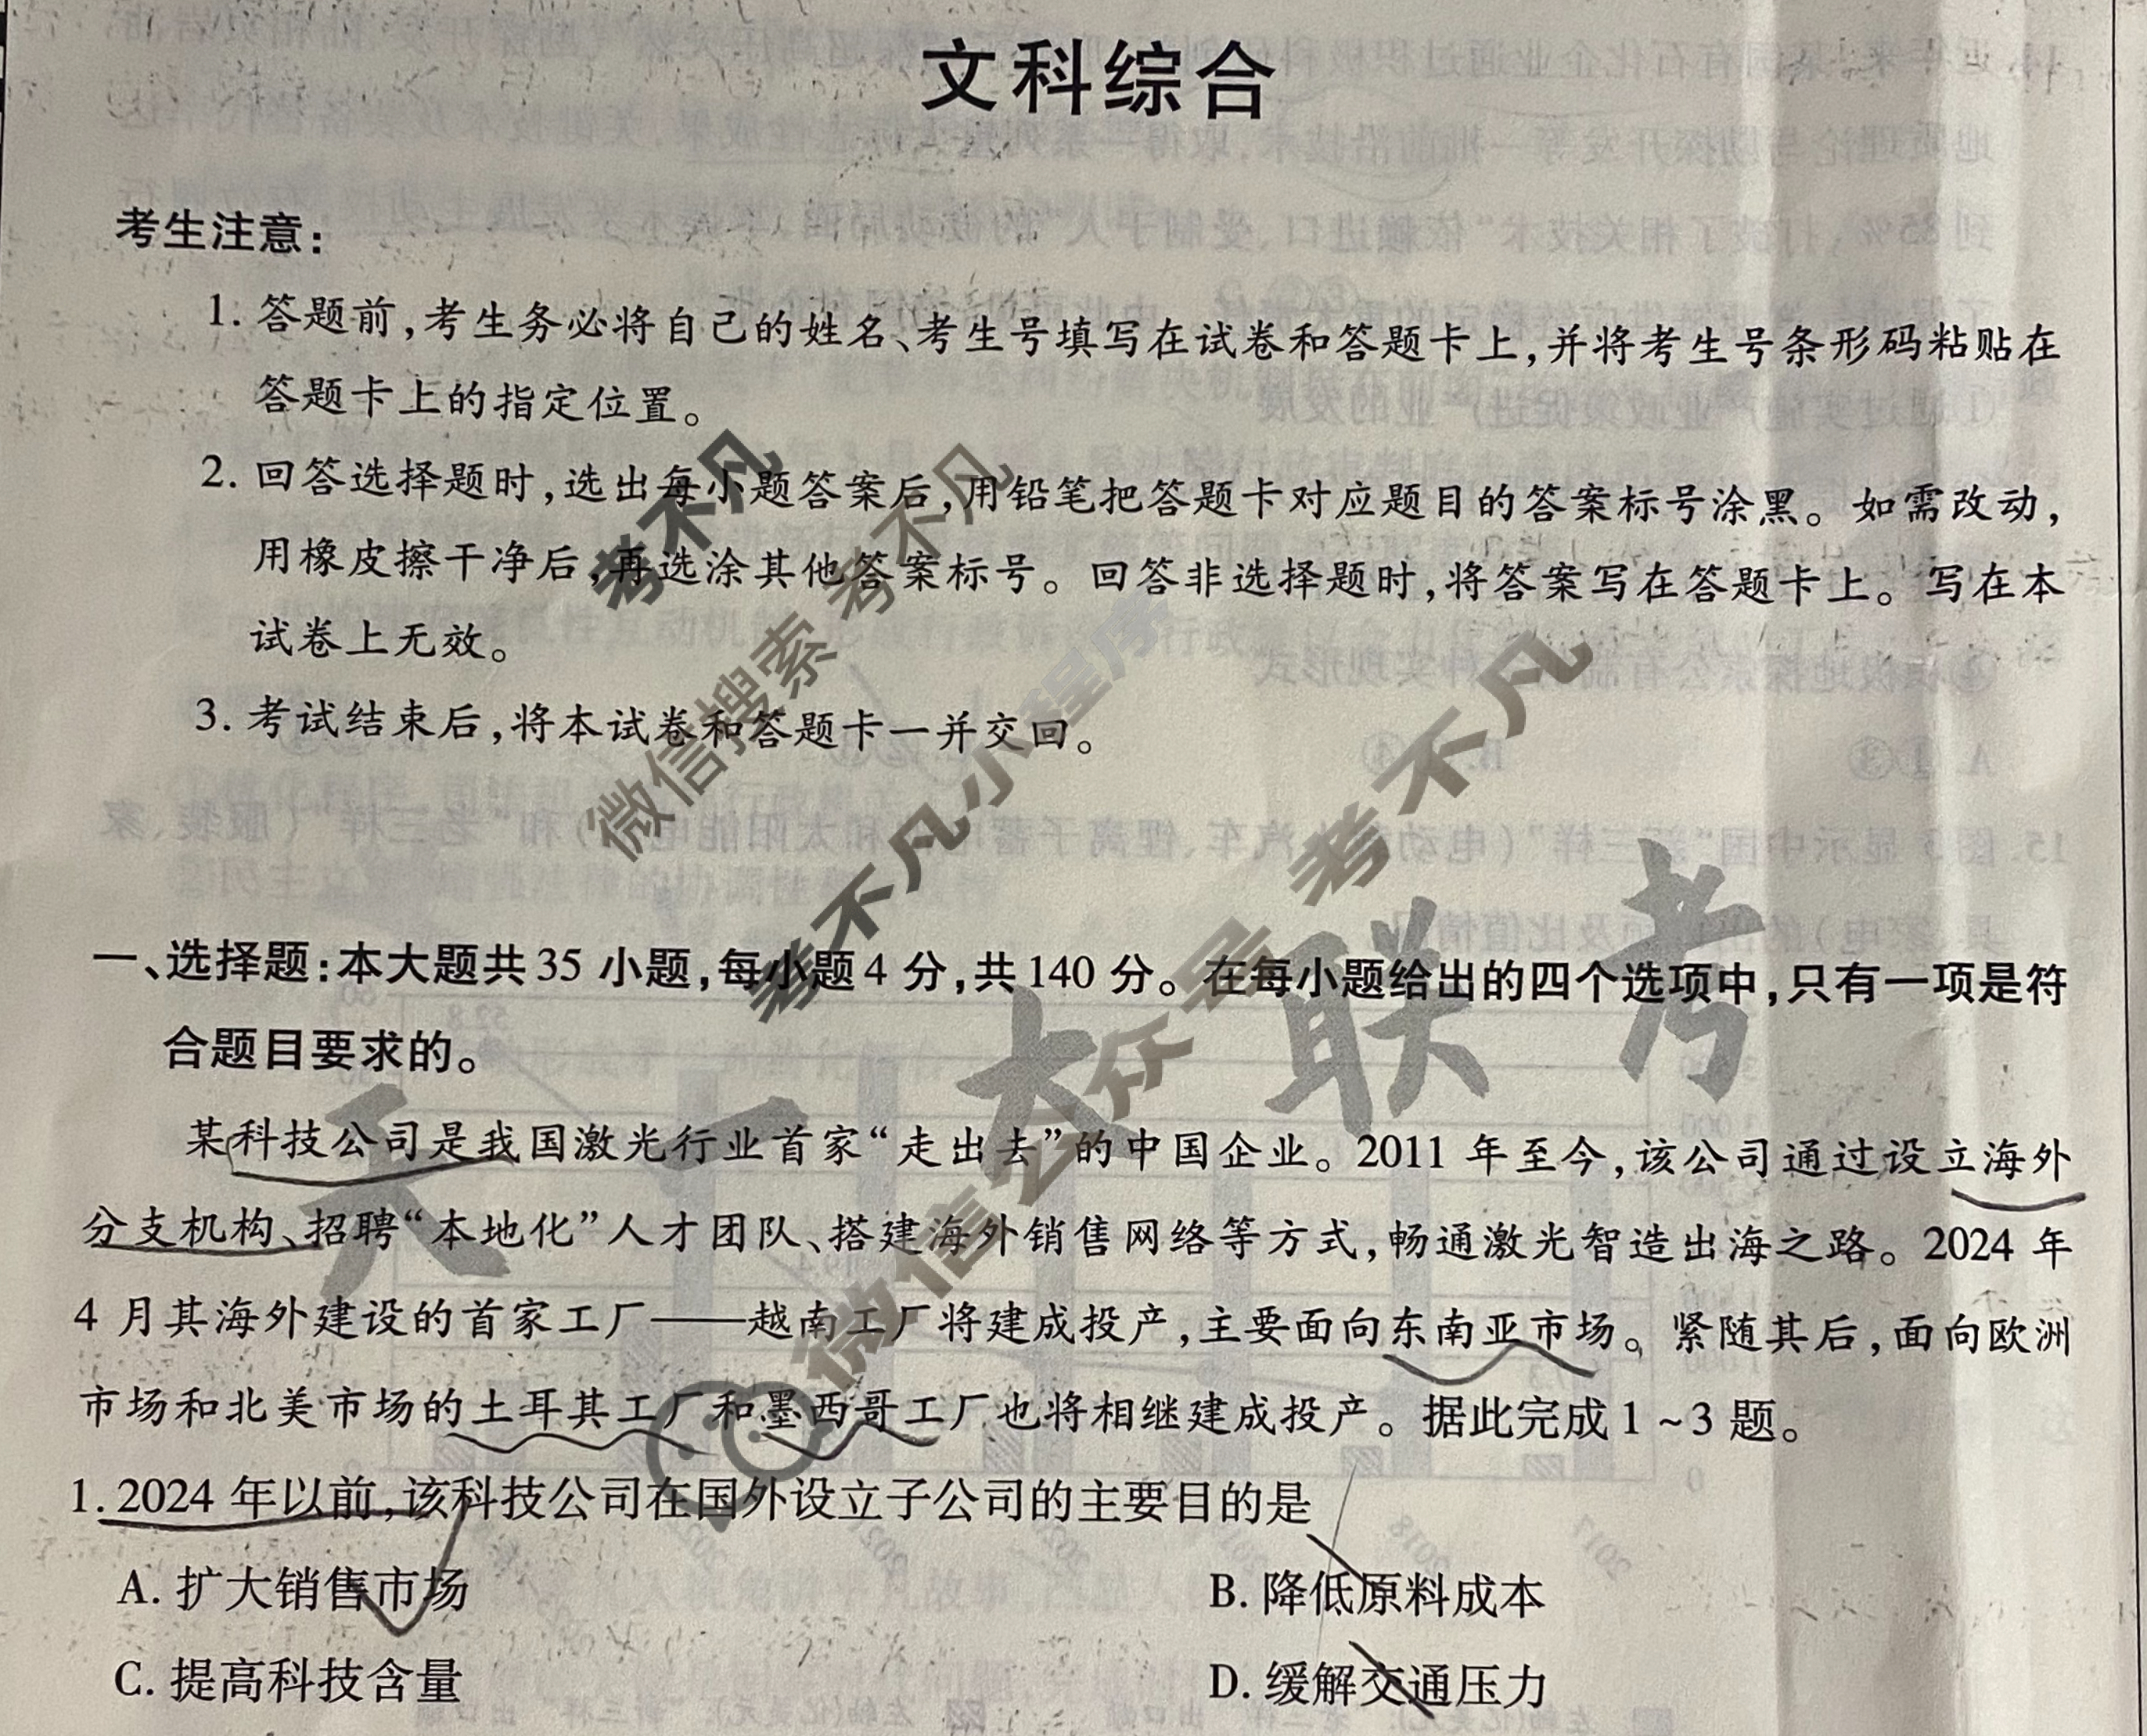 文科综合
考生注意:
1. 答题前,考生务必将自己的姓名、考生号填写在试卷和答题卡上,并将考生号条形码粘贴在
答题卡上的指定位置。
2. 回答选择题时,选出每小题答案后,用铅笔把答题卡对应题目的答案标号涂黑。如需改动,
用橡皮擦干净后,再选涂其他答案标号。回答非选择题时,将答案写在答题卡上。写在本
试卷上无效。
3. 考试结束后,将本试卷和答题卡一并交回。
考不凡
微信搜索 考不凡
考不凡小程序
微信公众号 考不凡
天一大联考
一、选择题:本大题共 35 小题,每小题 4 分,共 140 分。在每小题给出的四个选项中,只有一项是符
合题目要求的。
某科技公司是我国激光行业首家“走出去”的中国企业。2011 年至今,该公司通过设立海外
分支机构、招聘“本地化”人才团队、搭建海外销售网络等方式,畅通激光智造出海之路。2024 年
4 月其海外建设的首家工厂——越南工厂将建成投产,主要面向东南亚市场。紧随其后,面向欧洲
市场和北美市场的土耳其工厂和墨西哥工厂也将相继建成投产。据此完成 1 ~ 3 题。
1. 2024 年以前,该科技公司在国外设立子公司的主要目的是
A. 扩大销售市场 B. 降低原料成本
C. 提高科技含量 D. 缓解交通压力